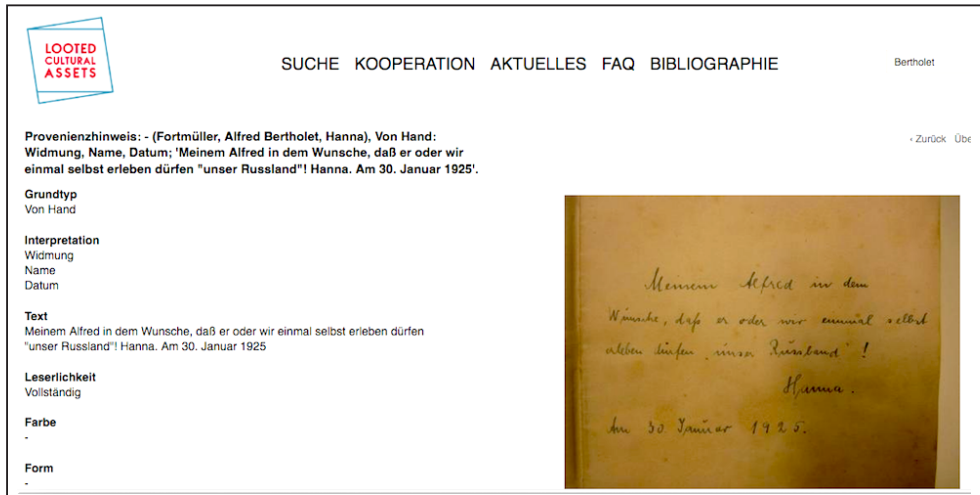 LOOTED
CULTURAL
ASSETS
SUCHE KOOPERATION AKTUELLES FAQ BIBLIOGRAPHIE
Bertholet
Provenienzhinweis: - (Fortmüller, Alfred Bertholet, Hanna), Von Hand:
Widmung, Name, Datum; 'Meinem Alfred in dem Wunsche, daß er oder wir
einmal selbst erleben dürfen "unser Russland"! Hanna. Am 30. Januar 1925'.
‹ Zurück Übe
Grundtyp
Von Hand
Interpretation
Widmung
Name
Datum
Text
Meinem Alfred in dem Wunsche, daß er oder wir einmal selbst erleben dürfen
"unser Russland"! Hanna. Am 30. Januar 1925
Leserlichkeit
Vollständig
Farbe
-
Form
-
Meinem Alfred in dem
Wunsche, daß er oder wir einmal selbst
erleben dürfen „unser Russland" !
Hanna.
Am 30. Januar 1925.